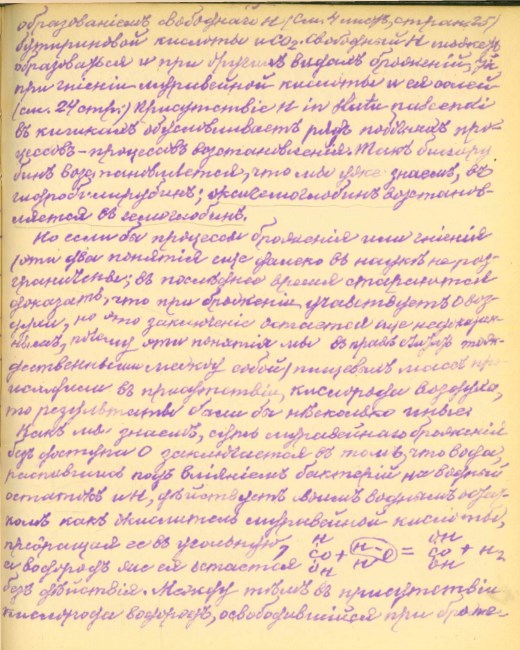 образованіемъ свободнаго H (см. 4 лист., стран. 25)
бутириновой кислоты и CO₂. Свободный H можетъ
образоваться и при другихъ видахъ броженій,
при гніеніи муравейной кислоты и ея солей
(см. 24 стр.) Присутствіе H in statu nascendi
въ кишкахъ обусловливаетъ рядъ побочныхъ про-
цессовъ – процессовъ возстановленія. Такъ билиру
бинъ возстановляется, что мы уже знаемъ, въ
гидробилирубинъ; оксигемоглобинъ возстанов-
ляется въ гемоглобинъ.
Но если бы процессы броженія или гніенія
(эти два понятія еще далеко въ наукѣ не раз-
граничены; въ послѣднее время стараются
доказать, что при броженіи участвуетъ O воз
духа, но это заключеніе остается еще недоказан-
нымъ, почему эти понятія мы въ правѣ считать тож-
дественными между собой) пищевыхъ массъ про-
исходили въ присутствіи кислорода воздуха,
то результаты были бы нѣсколько иные:
Какъ мы знаемъ, суть муравейнаго броженія
безъ доступа O заключается въ томъ, что вода,
распавшись подъ вліяніемъ бактерій на водный
остатокъ и H, дѣйствуетъ своимъ воднымъ остат-
комъ какъ окислитель муравейной кислоты,
превращая ее въ угольную,
а водородъ же ея остается
H CO OH + H-O H = OH CO OH + H₂
безъ дѣйствія. Между тѣмъ въ присутствіи
кислорода водородъ, освободившійся при броже-